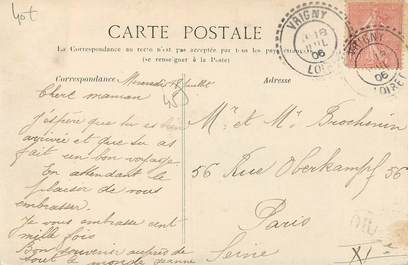 40t
CARTE POSTALE
La Correspondance au recto n'est pas acceptée par tous les pays étrangers
(se renseigner à la Poste)
VRIGNY
18
JUIL
06
LOIRET
VRIGNY
06
LOIRET
Correspondance
Mercredi 18 Juillet
45
Chere maman
J'espère que tu es bien
arrivée et que tu as
fait un bon voyage.
En attendant le
plaisir de vous
embrasser.
Je vous embrasse cent
mille fois
Bon souvenir auprès de
tout le monde Jeanne
Mr et Me
56 Rue Oberkampf 56
Paris
Seine
XIe